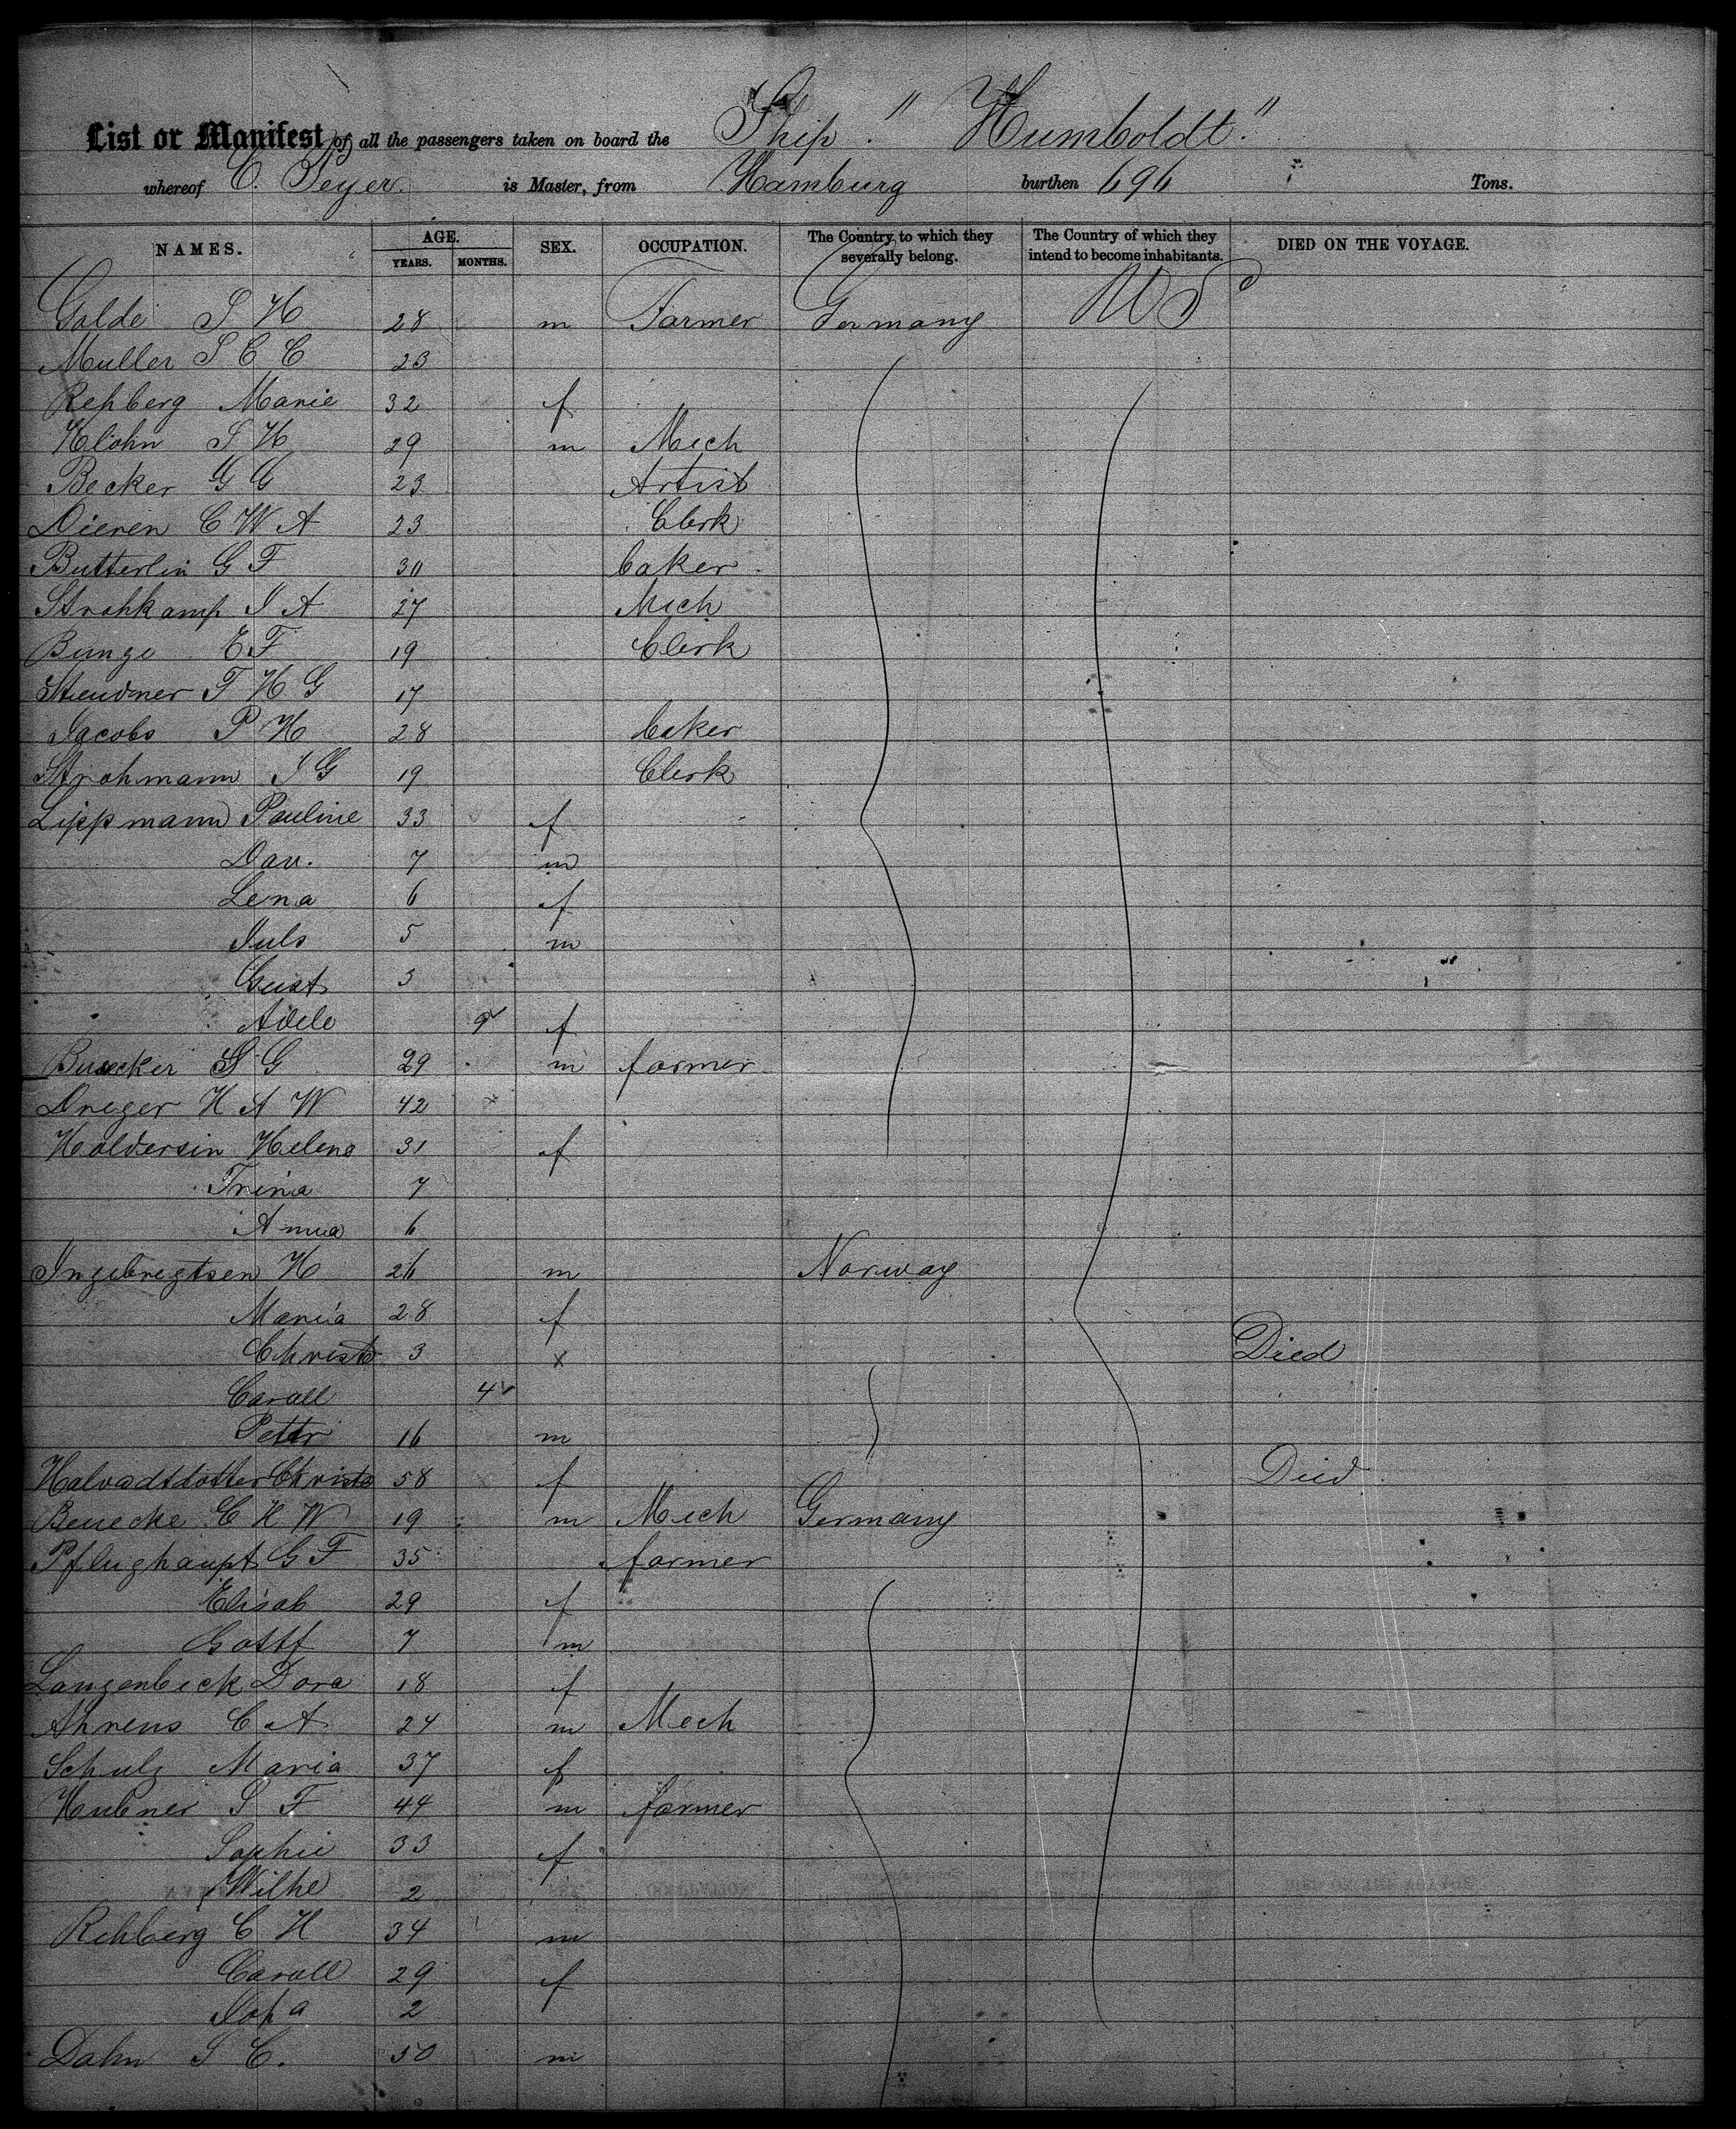 List or Manifest of all the passengers taken on board the Ship "Humboldt."
whereof C. Peyer. is Master, from Hamburg burthen 696 Tons.
NAMES. AGE. YEARS. MONTHS. SEX. OCCUPATION. The Country to which they severally belong. The Country of which they intend to become inhabitants. DIED ON THE VOYAGE.
Golde S H 28 m Farmer Germany U S
Muller S C C 23
Rehberg Marie 32 f
Klohn S H 29 m Mech
Becker G G 23 Artist
Dieren C W A 23 Clerk
Butterlin G F 30 baker
Strohkamp I A 27 Mech
Bunge E F 19 Clerk
Steudner F H G 17
Jacobs P H 28 baker
Strohmann I G 19 Clerk
Lippmann Pauline 33 f
Dav. 7 m
Lena 6 f
Juls 5 m
Gust 3
Adele 9 f
Busecker S G 29 m farmer
Dreger H A W 42
Holdersin Helene 31 f
Trina 7
Anna 6
Ingebregtsen H 26 m Norway
Maria 28 f
Christ 3 x Died
Caroll 4
Petter 16 m
Halvadtdotter Christe 58 f Died
Benecke C H W 19 m Mech Germany
Pflughaupt G F 35 farmer
Elisab 29 f
Gottf 7 m
Langenbeck Dora 18 f
Ahrens C A 24 m Mech
Schulz Maria 37 f
Hubner S F 44 m farmer
Sophie 33 f
Wilhe 2
Rehberg C H 34 m
Caroll 29 f
2
Dahn S C. 50 m